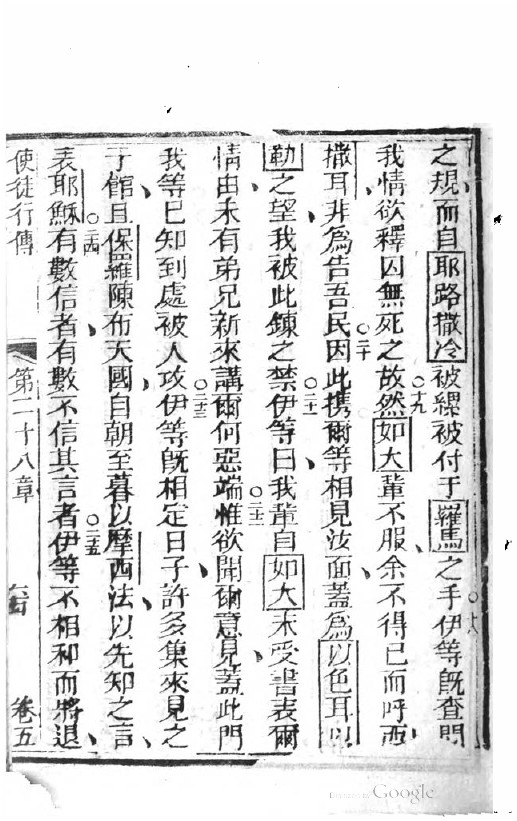 之規而自耶路撒冷被縲被付于羅馬之手○十八伊等既查問
我情欲釋因無死之故○十九然如大輩不服余不得已而呼西
撒耳非為告吾民○二十因此携爾等相見汝面蓋為以色耳以
勒之望我被此鍊之禁○二一伊等曰我輩自如大未受書表爾
情由未有弟兄新來講爾何惡端○二二惟欲聞爾意見蓋此門
我等已知到處被人攻○二三伊等既相定日子許多集來見之
于館且保羅陳布天國自朝至暮以摩西法以先知之言
表耶穌○二四有數信者有數不信其言者○二五伊等不相和而將退
使徒行傳 第二十八章 卷五
Digitized by Google